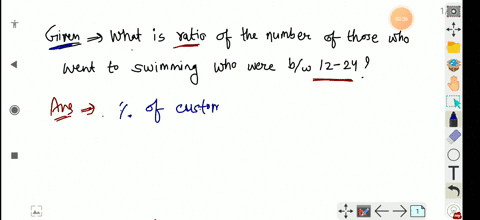 Given ⇒ What is ratio of the number of those who
went to swimming who were b/w 12-24?
Ans ⇒ % of custom